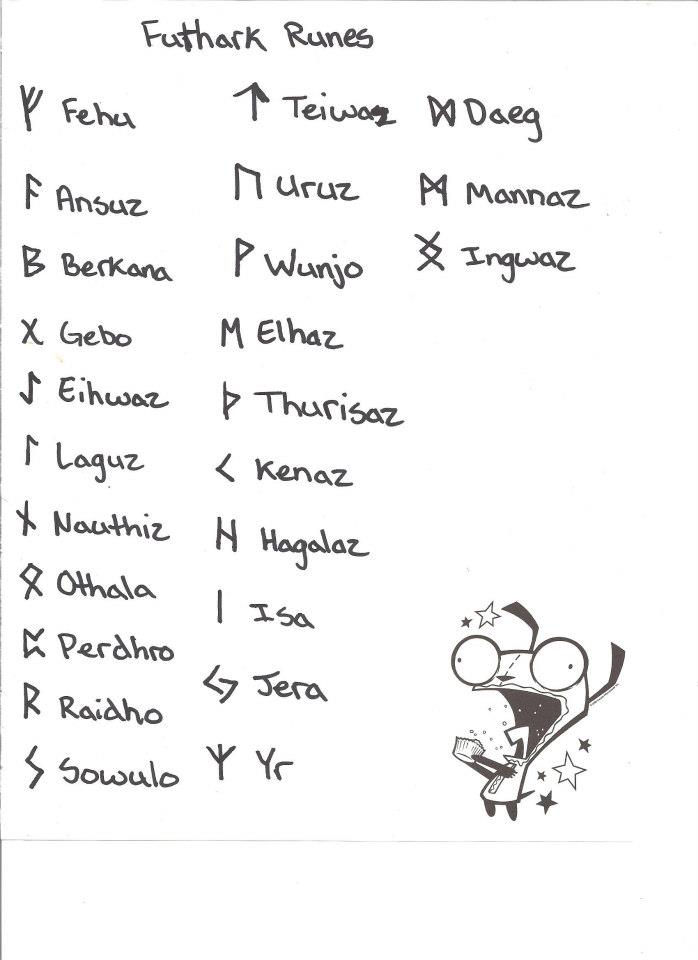 Futhark Runes
ᚠ Fehu
ᚨ Ansuz
ᛒ Berkana
ᚷ Gebo
ᛇ Eihwaz
ᛚ Laguz
ᚾ Nauthiz
ᛟ Othala
ᛈ Perdhro
ᚱ Raidho
ᛊ Sowulo
ᛏ Teiwaz
ᚢ Uruz
ᚹ Wunjo
ᛖ Elhaz
ᚦ Thurisaz
ᚲ Kenaz
ᚺ Hagalaz
ᛁ Isa
ᛃ Jera
ᛉ Yr
ᛞ Daeg
ᛗ Mannaz
ᛝ Ingwaz